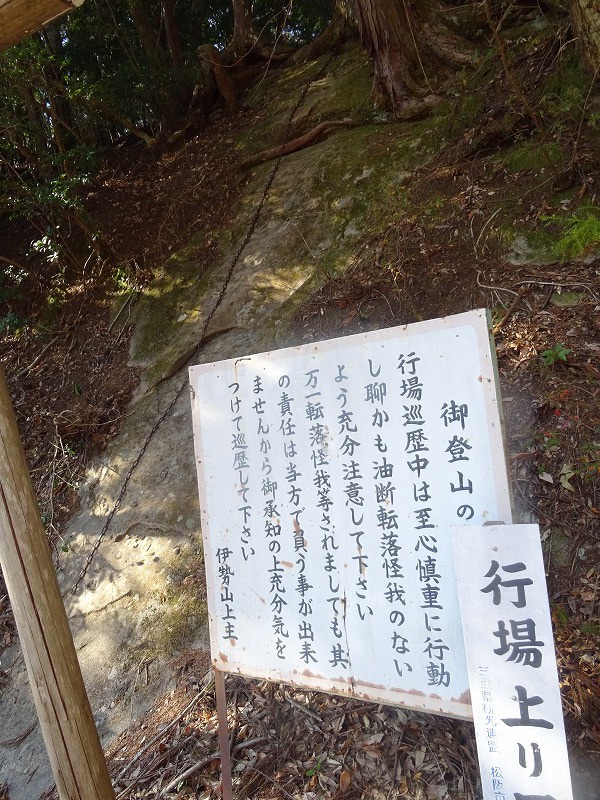 御登山の
行場巡歴中は至心慎重に行動
し聊かも油断転落怪我のない
よう充分注意して下さい
万一転落怪我等されましても其
の責任は当方で負う事が出来
ませんから御承知の上充分気を
つけて巡歴して下さい
伊勢山上主
行場上り
三重県観光連盟 松阪市